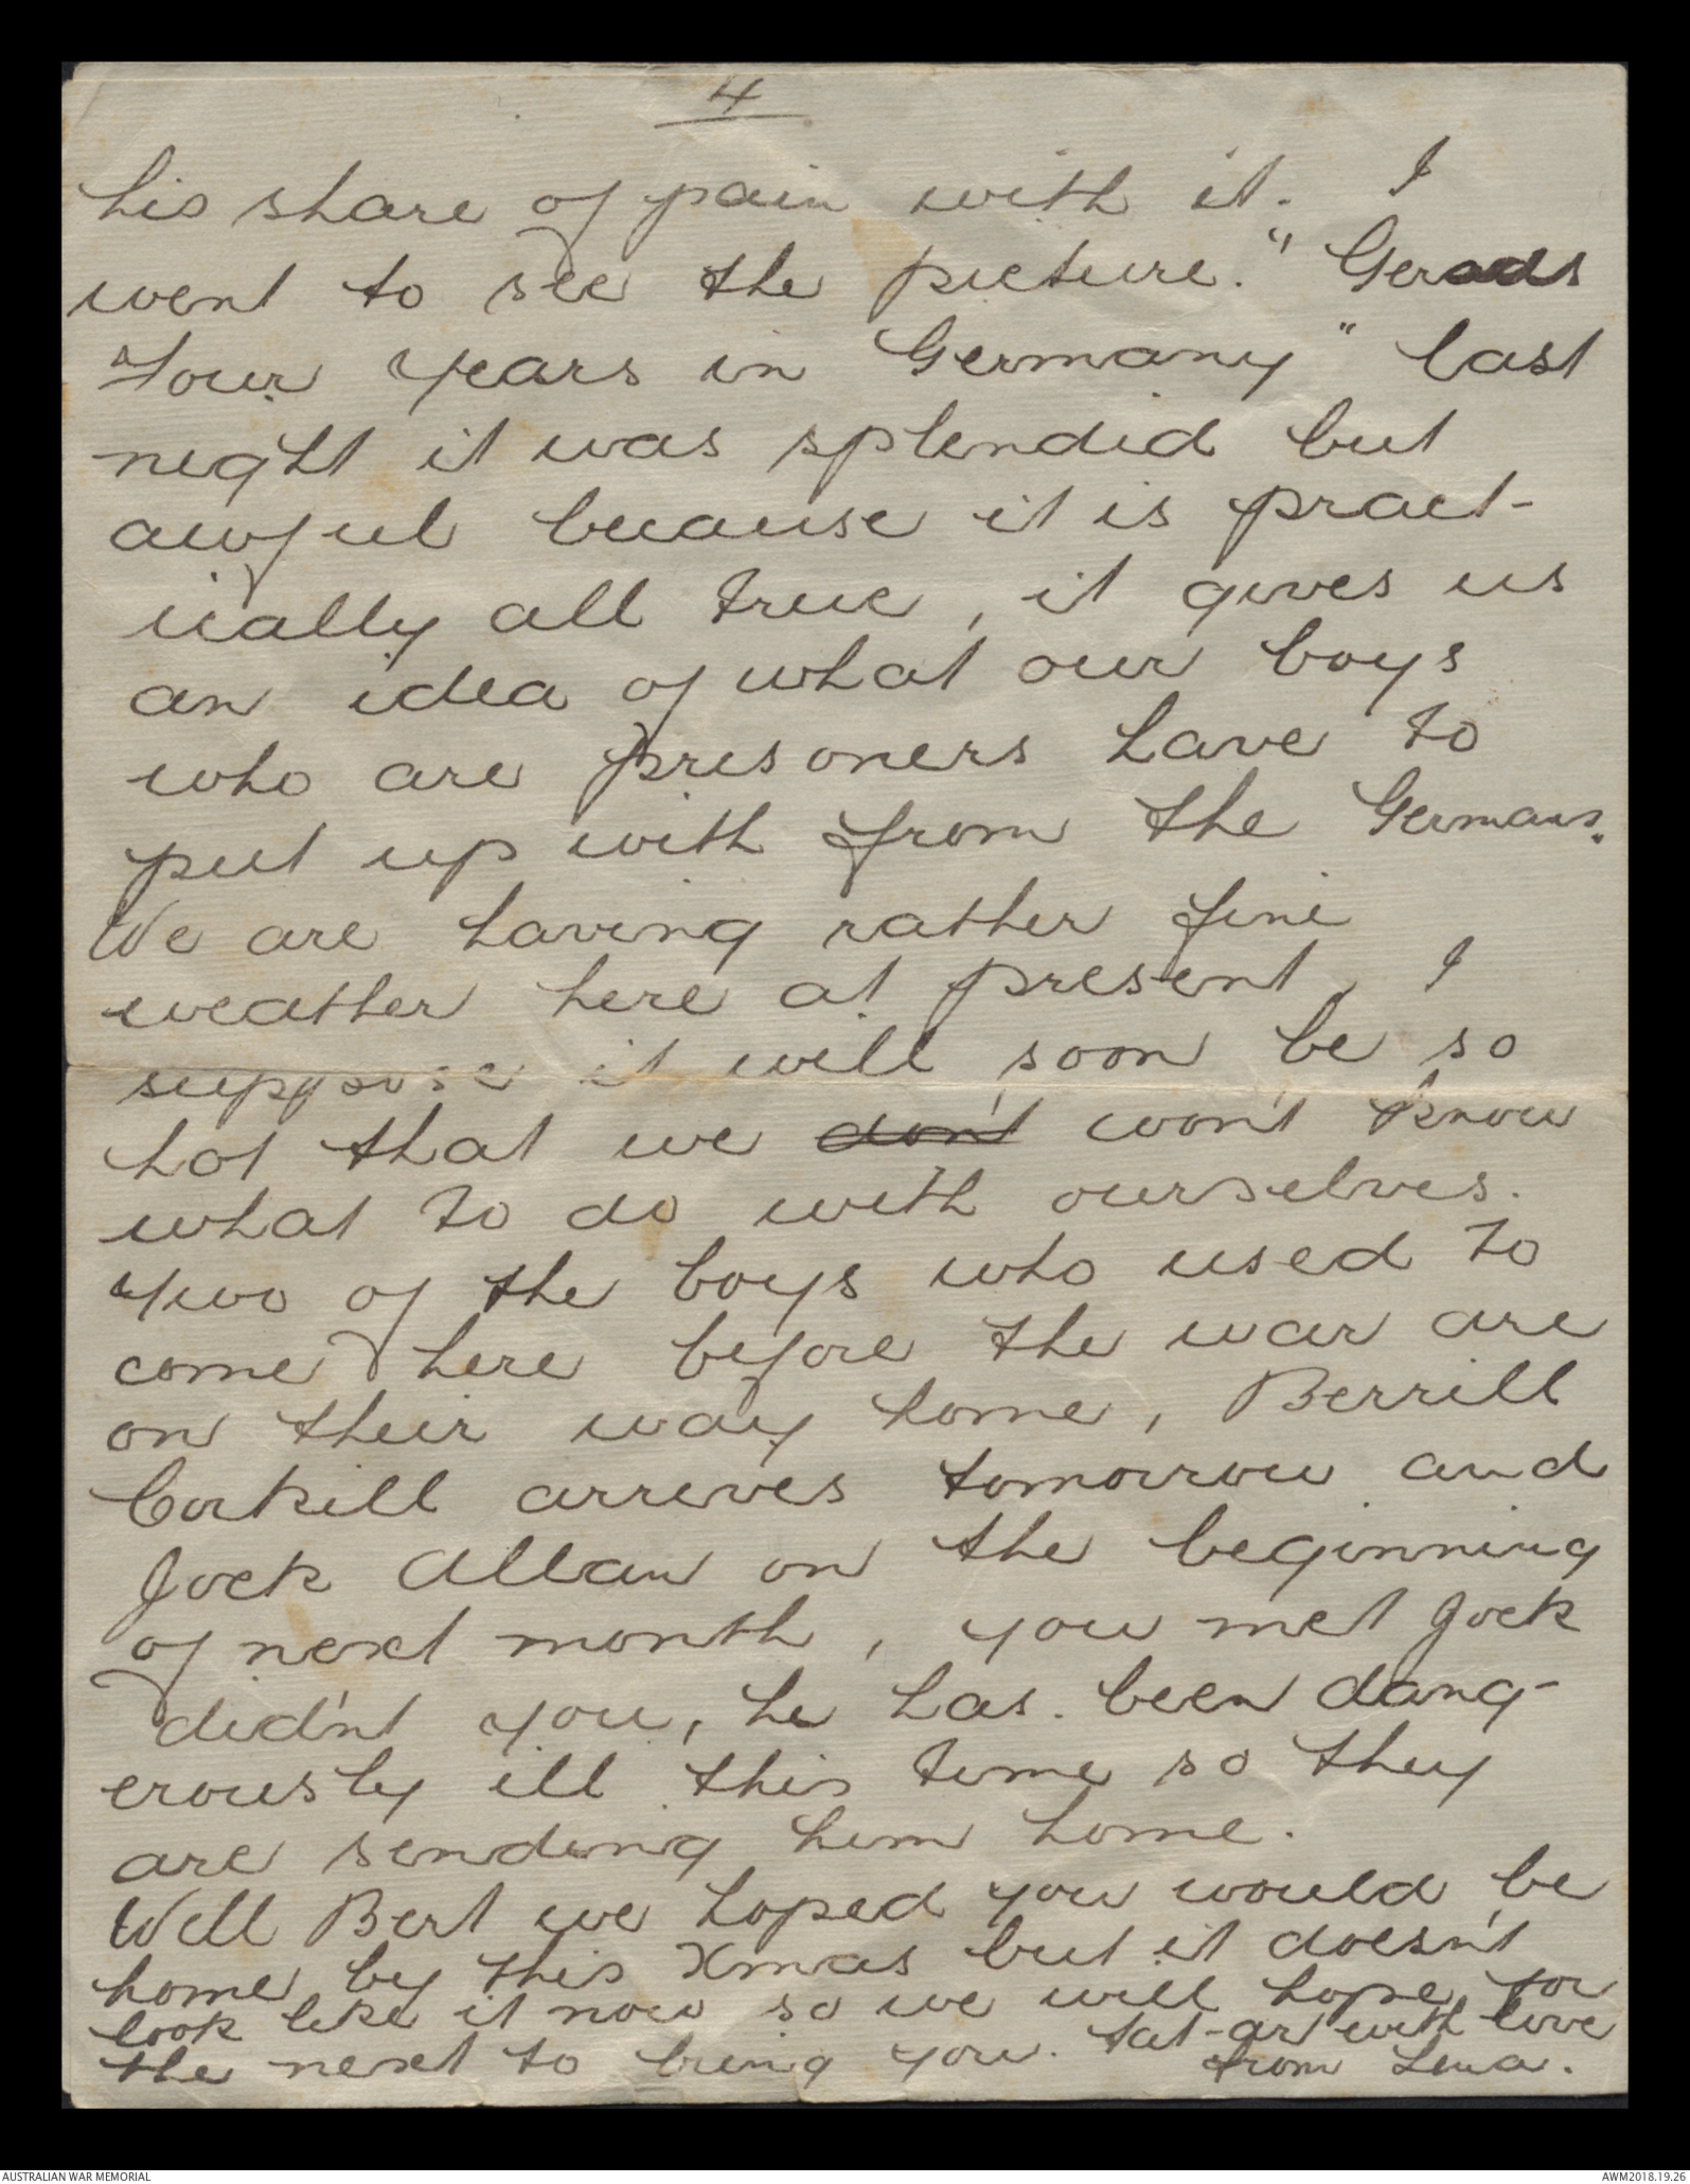 4
his share of pain with it. I
went to see the picture. "Gerads
Four years in Germany" last
night it was splendid but
awful because it is pract-
ically all true, it gives us
an idea of what our boys
who are prisoners have to
put up with from the Germans.
We are having rather fine
weather here at present, I
suppose it will soon be so
hot that we don't won't know
what to do with ourselves.
Two of the boys who used to
come here before the war are
on their way home, Berrill
Corkill arrives tomorrow and
Jock Allan on the beginning
of next month, you met Jock
did'nt you, he has been dang-
erously ill this time so they
are sending him home.
Well Bert we hoped you would be
home by this Xmas but it doesn't
look like it now so we will hope for
the next to bring you. Tat-ar with love
from Lena.
AUSTRALIAN WAR MEMORIAL
AWM2018.19.26